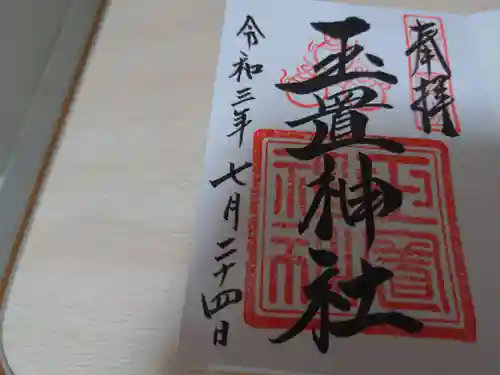 奉拝
玉置神社
令和三年七月二十四日